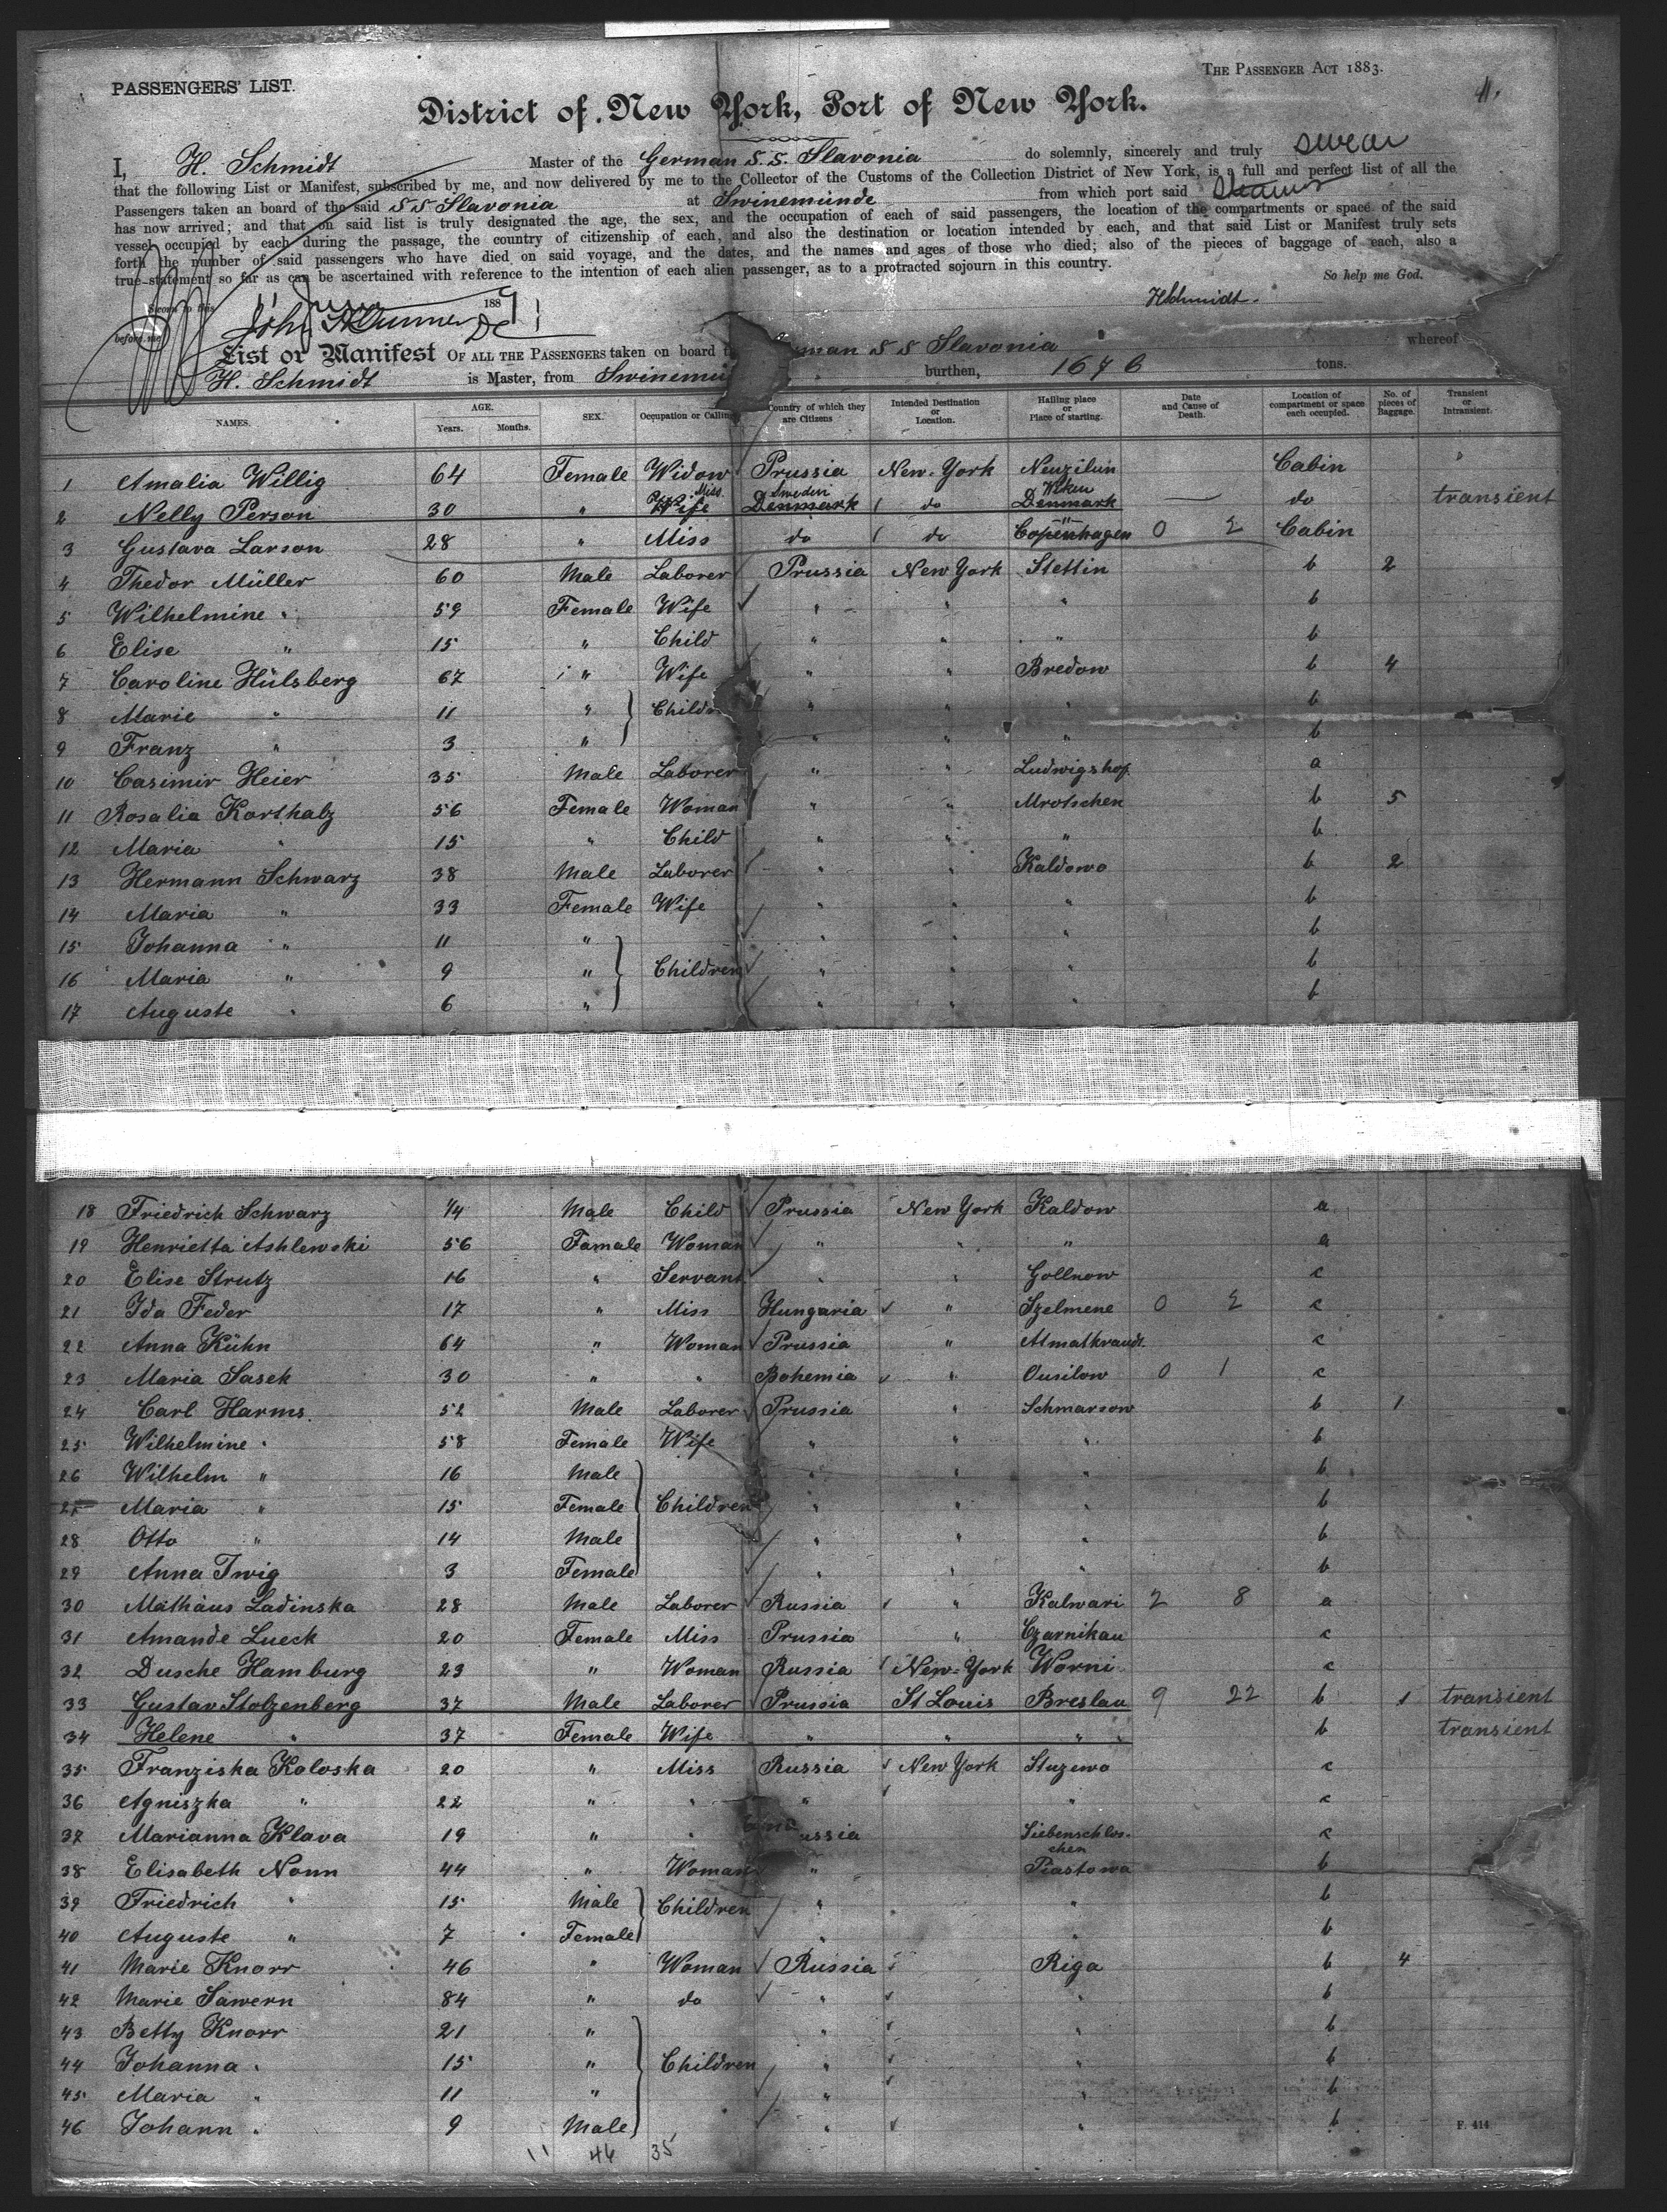 PASSENGERS' LIST.
THE PASSENGER ACT 1883.
11.
District of New York, Port of New York.
I, H. Schmidt Master of the German S.S. Slavonia do solemnly, sincerely and truly swear
that the following List or Manifest, subscribed by me, and now delivered by me to the Collector of the Customs of the Collection District of New York, is a full and perfect list of all the
Passengers taken an board of the said SS Slavonia at Swinemünde from which port said Steamer
has now arrived; and that on said list is truly designated the age, the sex, and the occupation of each of said passengers, the location of the compartments or space of the said
vessel occupied by each during the passage, the country of citizenship of each, and also the destination or location intended by each, and that said List or Manifest truly sets
forth the number of said passengers who have died on said voyage, and the dates, and the names and ages of those who died; also of the pieces of baggage of each, also a
true statement so far as can be ascertained with reference to the intention of each alien passenger, as to a protracted sojourn in this country.
So help me God.
Sworn to this 11 June 1889
HSchmidt.
before me
List or Manifest OF ALL THE PASSENGERS taken on board t man S S Slavonia whereof
H. Schmidt is Master, from Swinemü burthen, 1676 tons.
NAMES. AGE. Years. Months. SEX. Occupation or Calling Country of which they are Citizens Intended Destination or Location. Hailing place or Place of starting. Date and Cause of Death. Location of compartment or space each occupied. No. of pieces of Baggage. Transient or Intransient.
1 Amalia Willig 64 Female Widow Prussia New-York Neuzilun Cabin "
Miss Sweden Wiken
2 Nelly Person 30 " Wife Denmark do Denmark do transient
3 Gustava Larson 28 " Miss do do Copenhagen 0 2 Cabin
4 Thedor Müller 60 Male Laborer Prussia New York Stettin b 2
5 Wilhelmine " 59 Female Wife " " " b
6 Elise " 15 " Child " " " b
7 Caroline Hülsberg 67 " Wife " " Bredow b 4
8 Marie " 11 " Childr " " " b
9 Franz " 3 " " " " b
10 Casimir Heier 35 Male Laborer " " Ludwigshof a
11 Rosalia Korthalz 56 Female Woman " " Mrotschen b 5
12 Maria " 15 " Child " " " b
13 Hermann Schwarz 38 Male Laborer " " Kaldowo b 2
14 Maria " 33 Female Wife " " " b
15 Johanna " 11 " " " " b
16 Maria " 9 " Children " " " b
17 Auguste " 6 " " " " b
18 Friedrich Schwarz 1/4 Male Child Prussia New York Kaldow a
19 Henrietta Ashlewski 56 Famale Woman " " " a
20 Elise Strutz 16 " Servant " " Gollnow c
21 Ida Feder 17 " Miss Hungaria " Szelmene 0 2 c
22 Anna Kühn 64 " Woman Prussia " Almatkraudt c
23 Maria Sasek 30 " " Bohemia " Ousilow 0 1 c
24 Carl Harms 52 Male Laborer Prussia " Schmarsow b 1
25 Wilhelmine " 58 Female Wife " " " b
26 Wilhelm " 16 Male " " " b
27 Maria " 15 Female Children " " " b
28 Otto " 14 Male " " " b
29 Anna Twig 3 Female " " " b
30 Mathäus Ladinska 28 Male Laborer Russia " Kalwari 2 8 a
31 Amande Lueck 20 Female Miss Prussia " Czarnikau c
32 Dusche Hamburg 23 " Woman Russia New-York Worni c
33 Gustav Stolzenberg 37 Male Laborer Prussia St Louis Breslau 9 22 b 1 transient
34 Helene " 37 Female Wife " " " b transient
35 Franziska Koloska 20 " Miss Russia New York Stuzewo c
36 Agniszka " 22 " " " " c
37 Marianna Klava 19 " " ussia Siebenschlos- c
chen
38 Elisabeth Nonn 44 " Woman " Piastowa b
39 Friedrich " 15 Male Children " " b
40 Auguste " 7 Female " " b
41 Marie Knorr 46 " Woman Russia Riga b 4
42 Marie Sawern 84 " do " " b
43 Betty Knorr 21 " " " b
44 Johanna " 15 " Children " " b
45 Maria " 11 " " " b
46 Johann " 9 Male " " b
F. 414
11 46 35